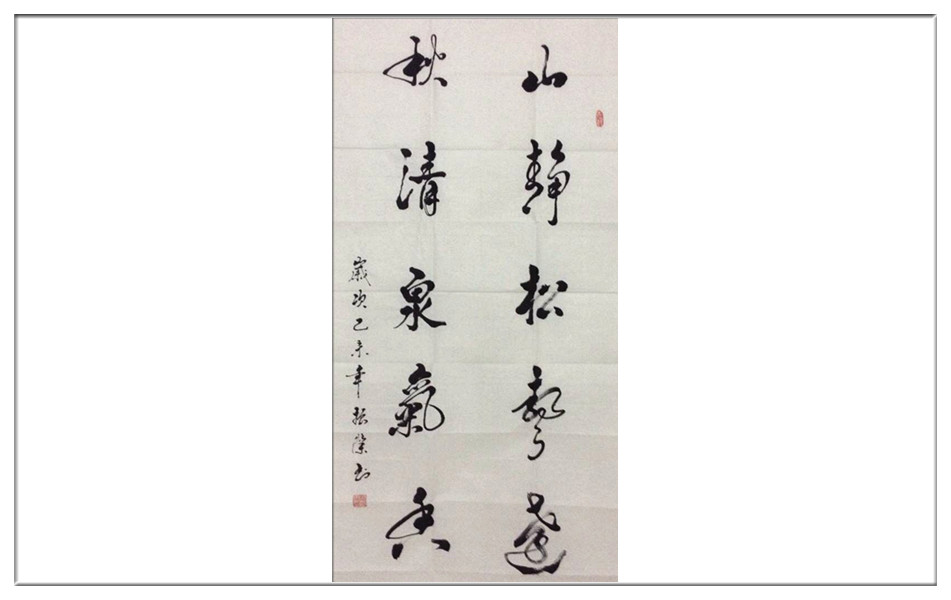 山靜松聲遠
秋清泉氣香
歲次乙未年振榮書